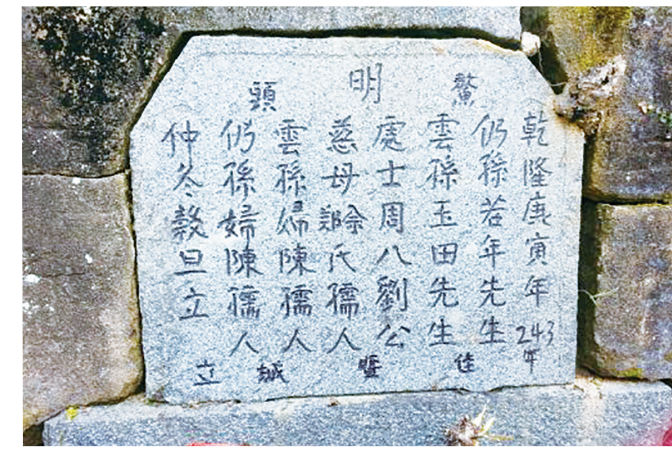 鰲明頭
乾隆庚寅年243年
仍孫若年先生
雲孫玉田先生
處士周八劉公
慈母氏孺人
雲孫婦陳孺人
仍孫婦陳孺人
仲冬穀旦立
佳城立